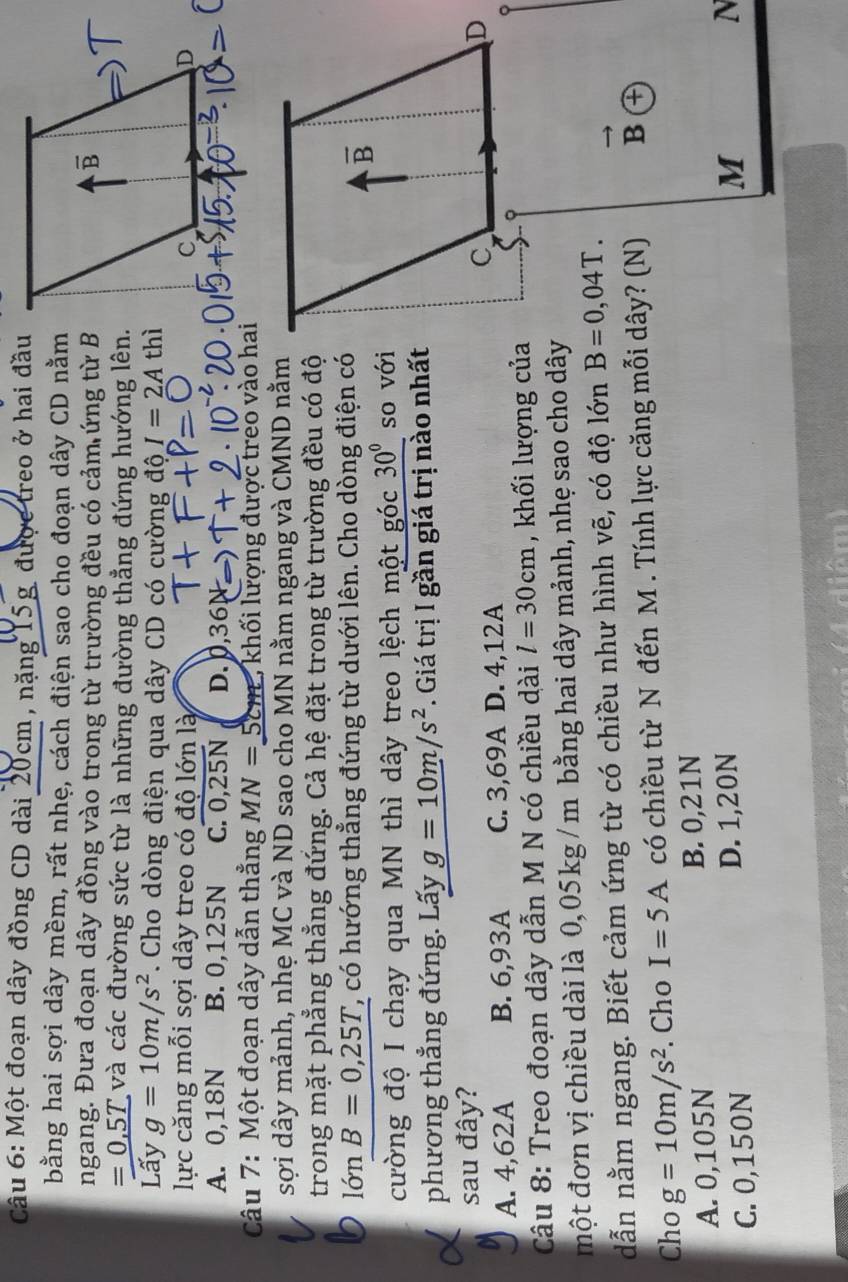 Câu 6: Một đoạn dây đồng CD dài 20cm, nặng 15g được treo ở hai đầu
bằng hai sợi dây mềm, rất nhẹ, cách điện sao cho đoạn dây CD nằm
ngang. Đưa đoạn dây đồng vào trong từ trường đều có cảm ứng từ B
= 0,5T và các đường sức từ là những đường thẳng đứng hướng lên.
Lấy g = 10m/s². Cho dòng điện qua dây CD có cường độ I = 2A thì
lực căng mỗi sợi dây treo có độ lớn là
T + F + P = 0
A. 0,18N B. 0,125N C. 0,25N D. 0,36N
(=) T + 2.10⁻².20.0,5 + 15.10⁻³.10 = 0
=) T
B
C
D
Câu 7: Một đoạn dây dẫn thẳng MN = 5cm, khối lượng được treo vào hai
sợi dây mảnh, nhẹ MC và ND sao cho MN nằm ngang và CMND nằm
trong mặt phẳng thẳng đứng. Cả hệ đặt trong từ trường đều có độ
lớn B = 0,25T, có hướng thẳng đứng từ dưới lên. Cho dòng điện có
cường độ I chạy qua MN thì dây treo lệch một góc 30⁰ so với
phương thẳng đứng. Lấy g = 10m/s². Giá trị I gần giá trị nào nhất
sau đây?
A. 4,62A B. 6,93A C. 3,69A D. 4,12A
B
C
D
Câu 8: Treo đoạn dây dẫn M N có chiều dài l = 30cm, khối lượng của
một đơn vị chiều dài là 0,05kg/m bằng hai dây mảnh, nhẹ sao cho dây
dẫn nằm ngang. Biết cảm ứng từ có chiều như hình vẽ, có độ lớn B = 0,04T.
Cho g = 10m/s². Cho I = 5A có chiều từ N đến M. Tính lực căng mỗi dây? (N)
A. 0,105N B. 0,21N
C. 0,150N D. 1,20N
B +
M N